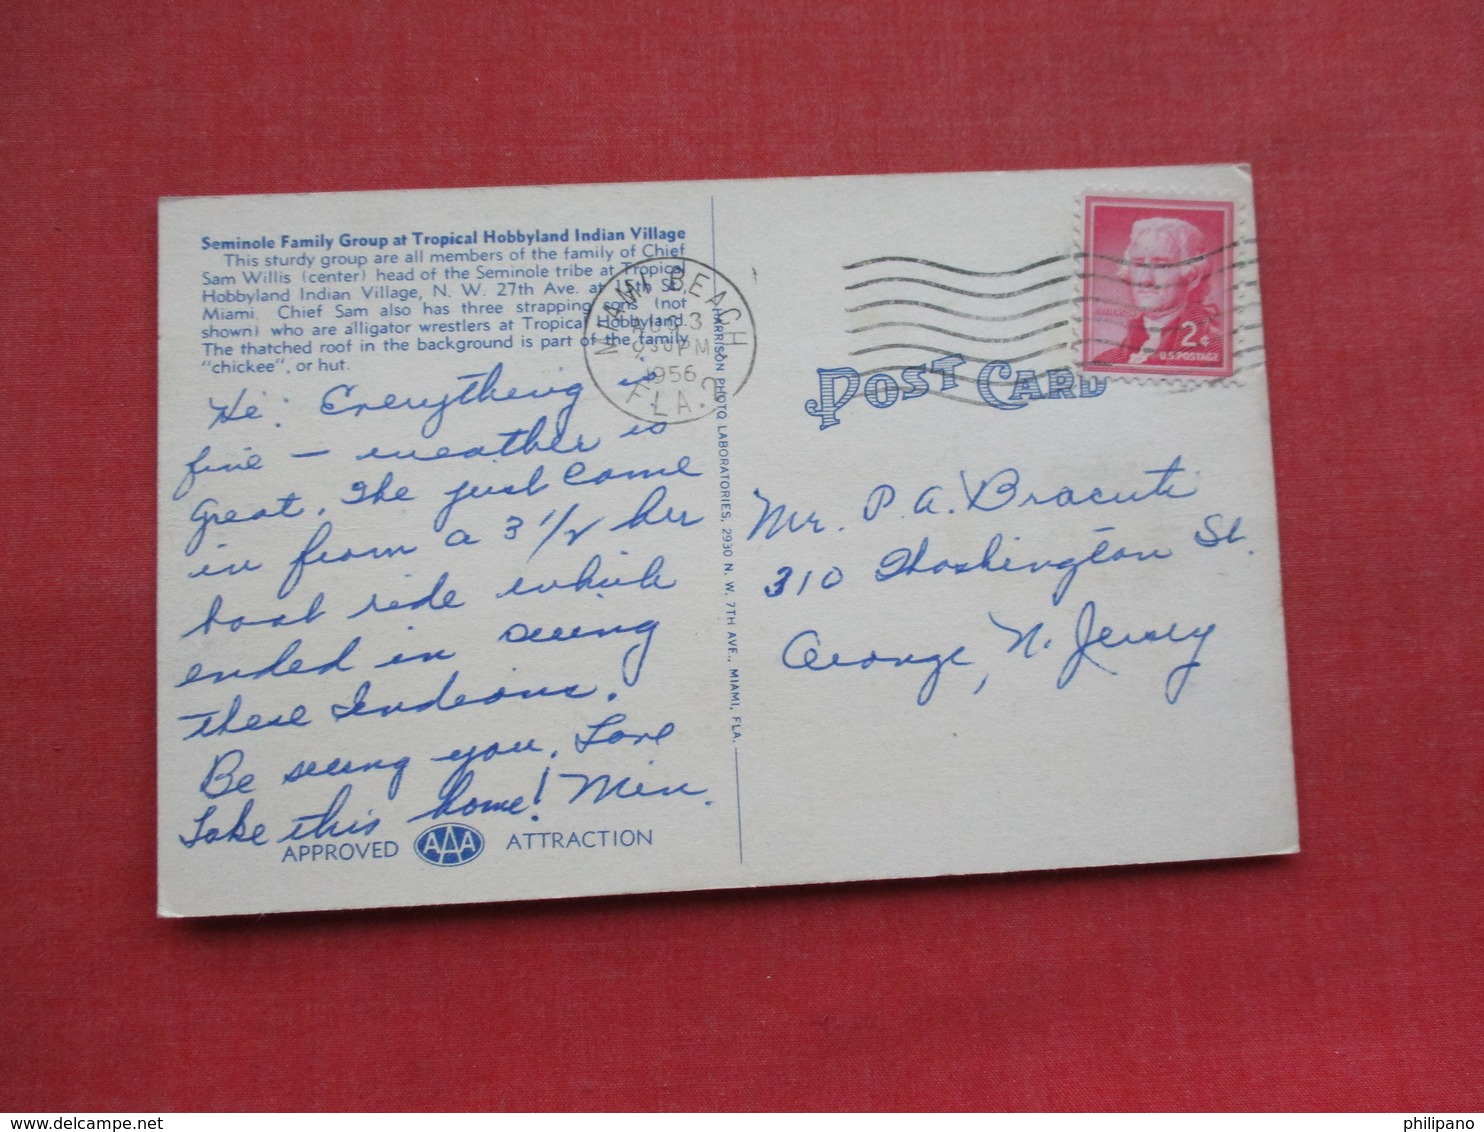 Seminole Family Group at Tropical Hobbyland Indian Village
This sturdy group are all members of the family of Chief
Sam Willis (center) head of the Seminole tribe at Tropical
Hobbyland Indian Village, N. W. 27th Ave. at 15th St.,
Miami. Chief Sam also has three strapping sons (not
shown) who are alligator wrestlers at Tropical Hobbyland.
The thatched roof in the background is part of the family
"chickee", or hut.
Hi: Everything is
fine — weather is
great. The just came
in from a 3 1/2 her
boat ride which
ended in seeing
these Indians.
Be seeing you, Love
Take this home! Min.
APPROVED AAA ATTRACTION
HARRISON PHOTO LABORATORIES, 2930 N. W. 7TH AVE., MIAMI, FLA.
MIAMI BEACH
AUG 3
930 PM
1956
FLA.
2¢
U.S. POSTAGE
POST CARD
Mr. P. A. Bracuti
310 Washington St.
Orange, N. Jersey
delcampe.net
philipano